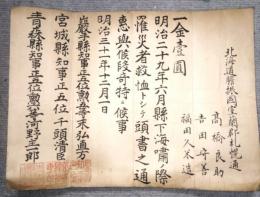 北海道膽振國室蘭郡札幌通
高橋良助
吉田時善
福田久末造
一金壹圓
明治二十九年六月縣下海嘯ノ際
罹災者救恤トシテ頭書之通
惠與候段奇特ニ候事
明治三十年十二月一日
巖手縣知事正五位勲四等末弘直方
宮城縣知事正五位千頭清臣
青森縣知事正五位勲六等河野主一郎